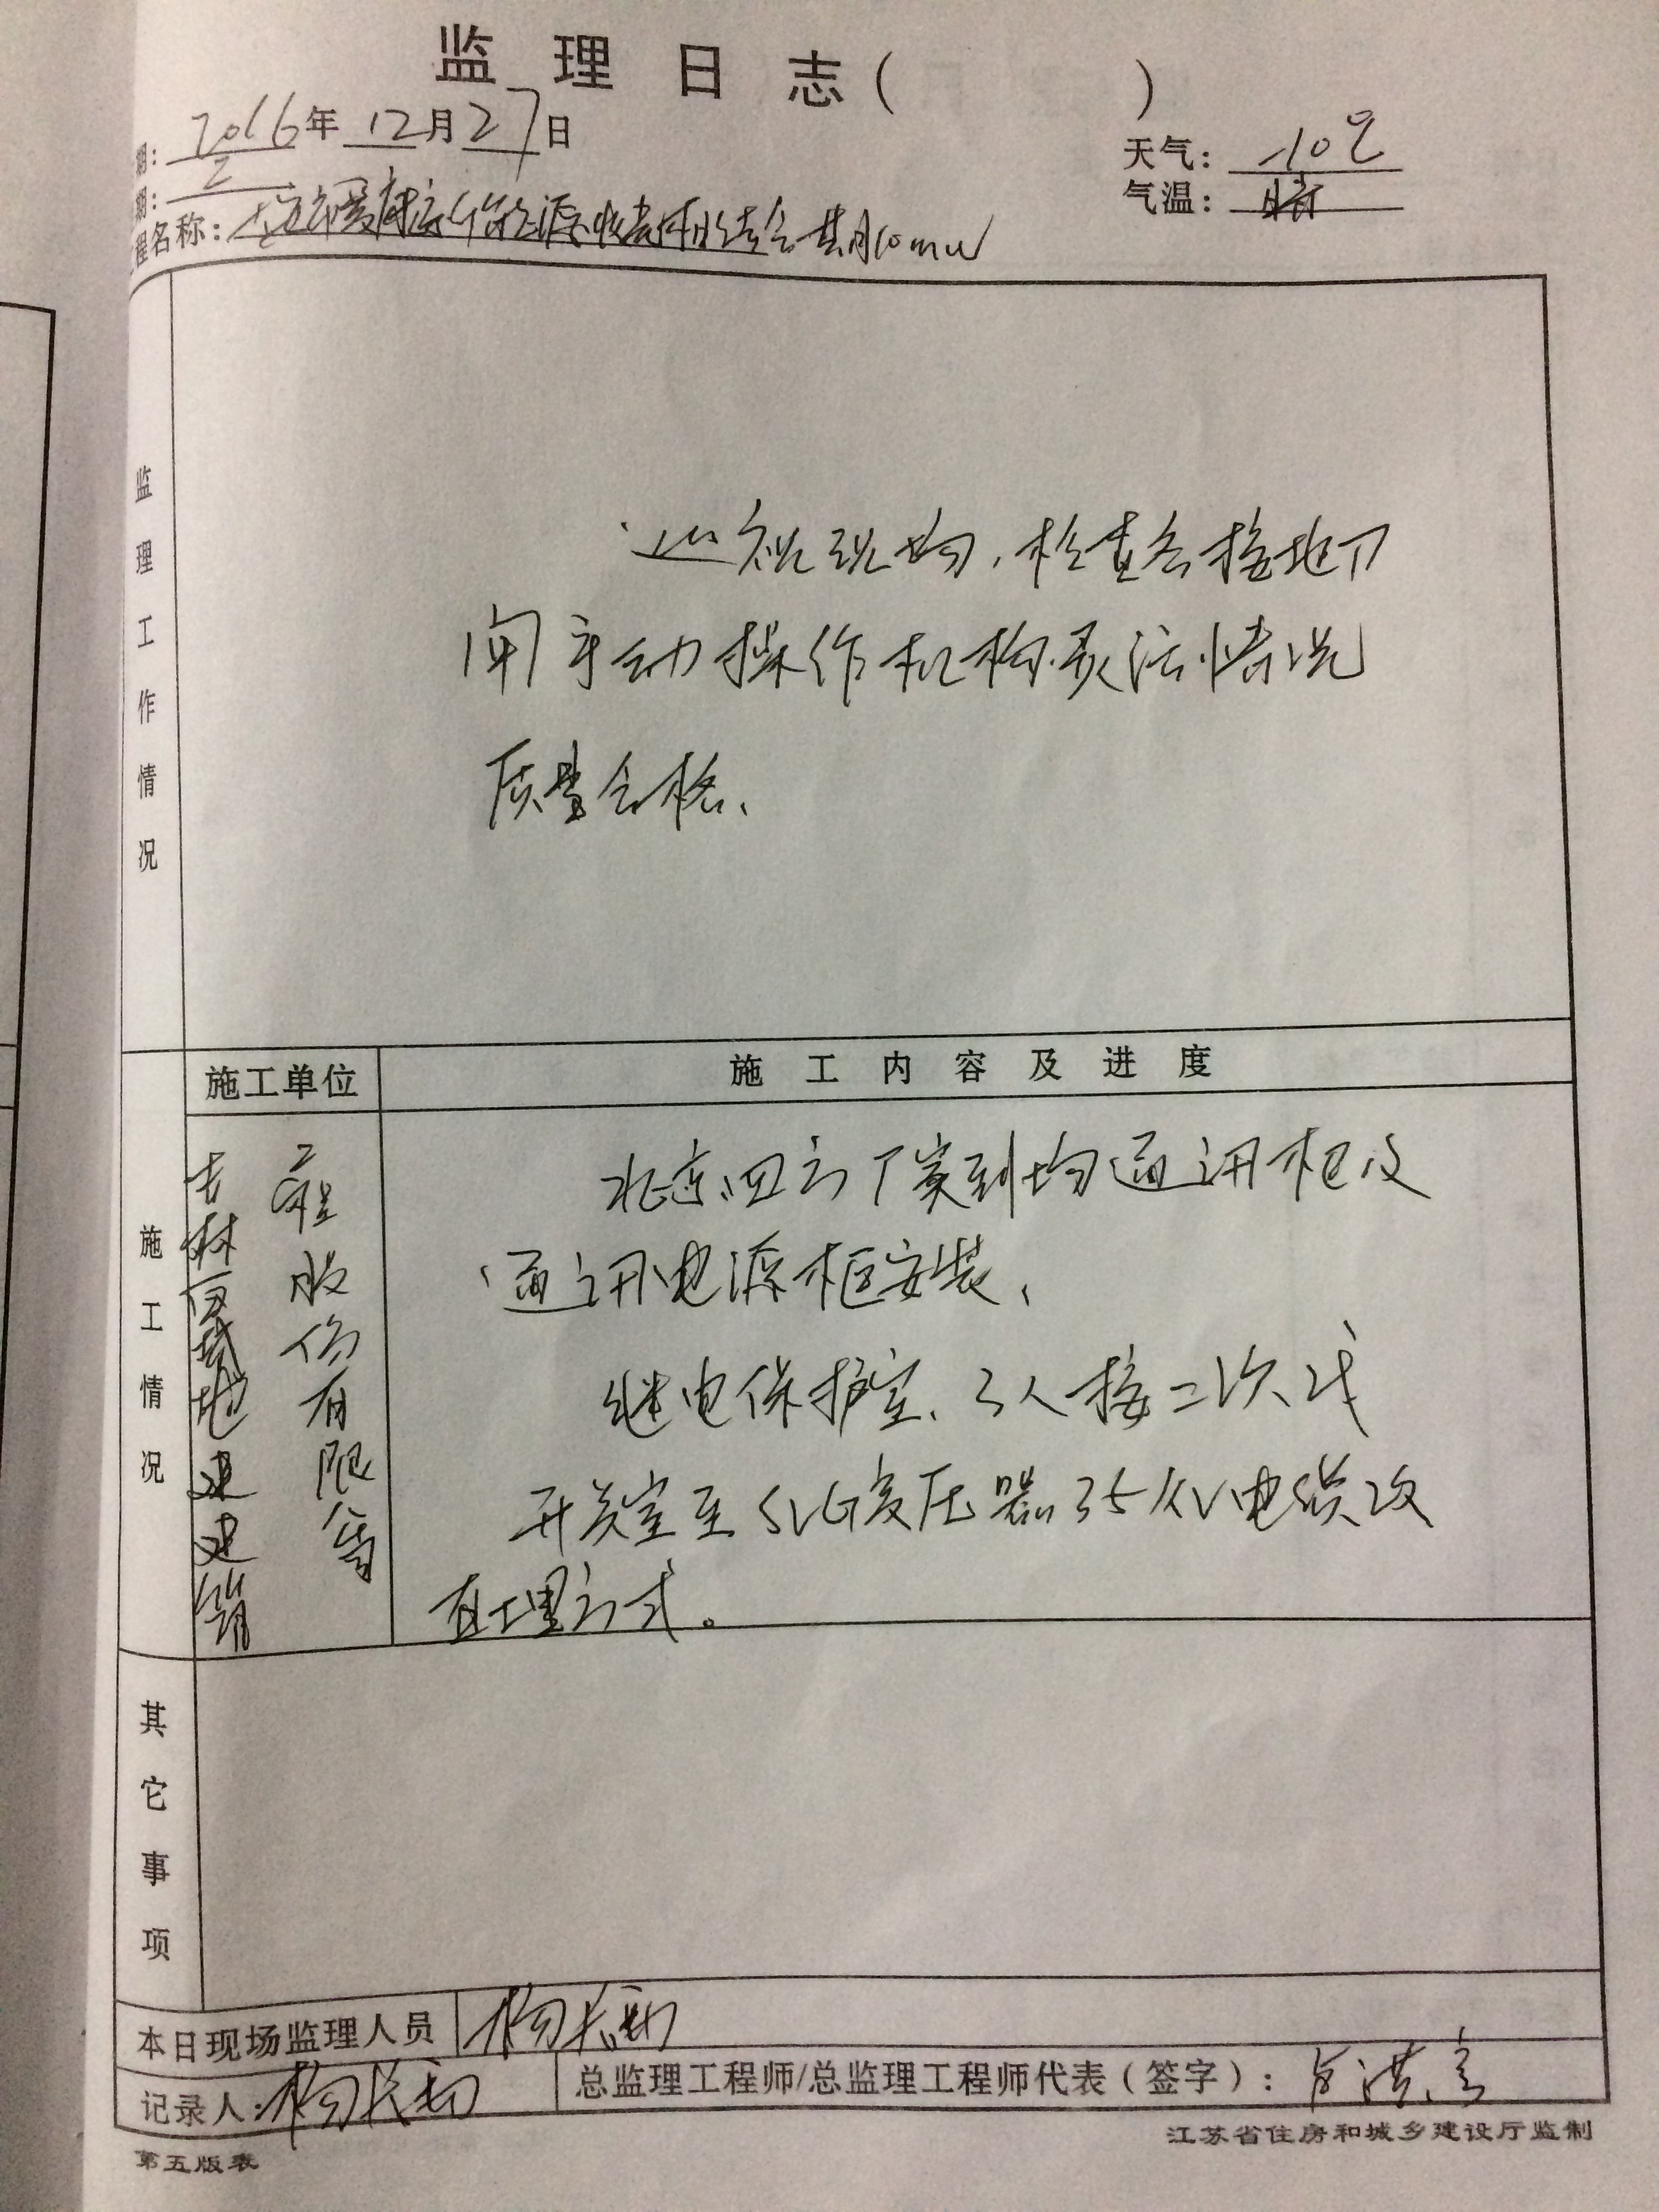 监理日志( )
期: 2016年 12月27日
天气: -10℃
期: 二
气温: 晴
程名称:
监理工作情况
巡视现场,检查各接地刀
闸手动操作机构灵活情况
质量合格、
施工单位
施工内容及进度
施工情况
吉林 地 建筑
工程股份有限公司
北京四方厂家到场通讯柜及
通讯电源柜安装、
继电保护室、3人接二次线
开关室至SVG变压器35KV电缆改
直埋方式。
其它事项
本日现场监理人员
记录人:
总监理工程师/总监理工程师代表(签字):
第五版表
江苏省住房和城乡建设厅监制